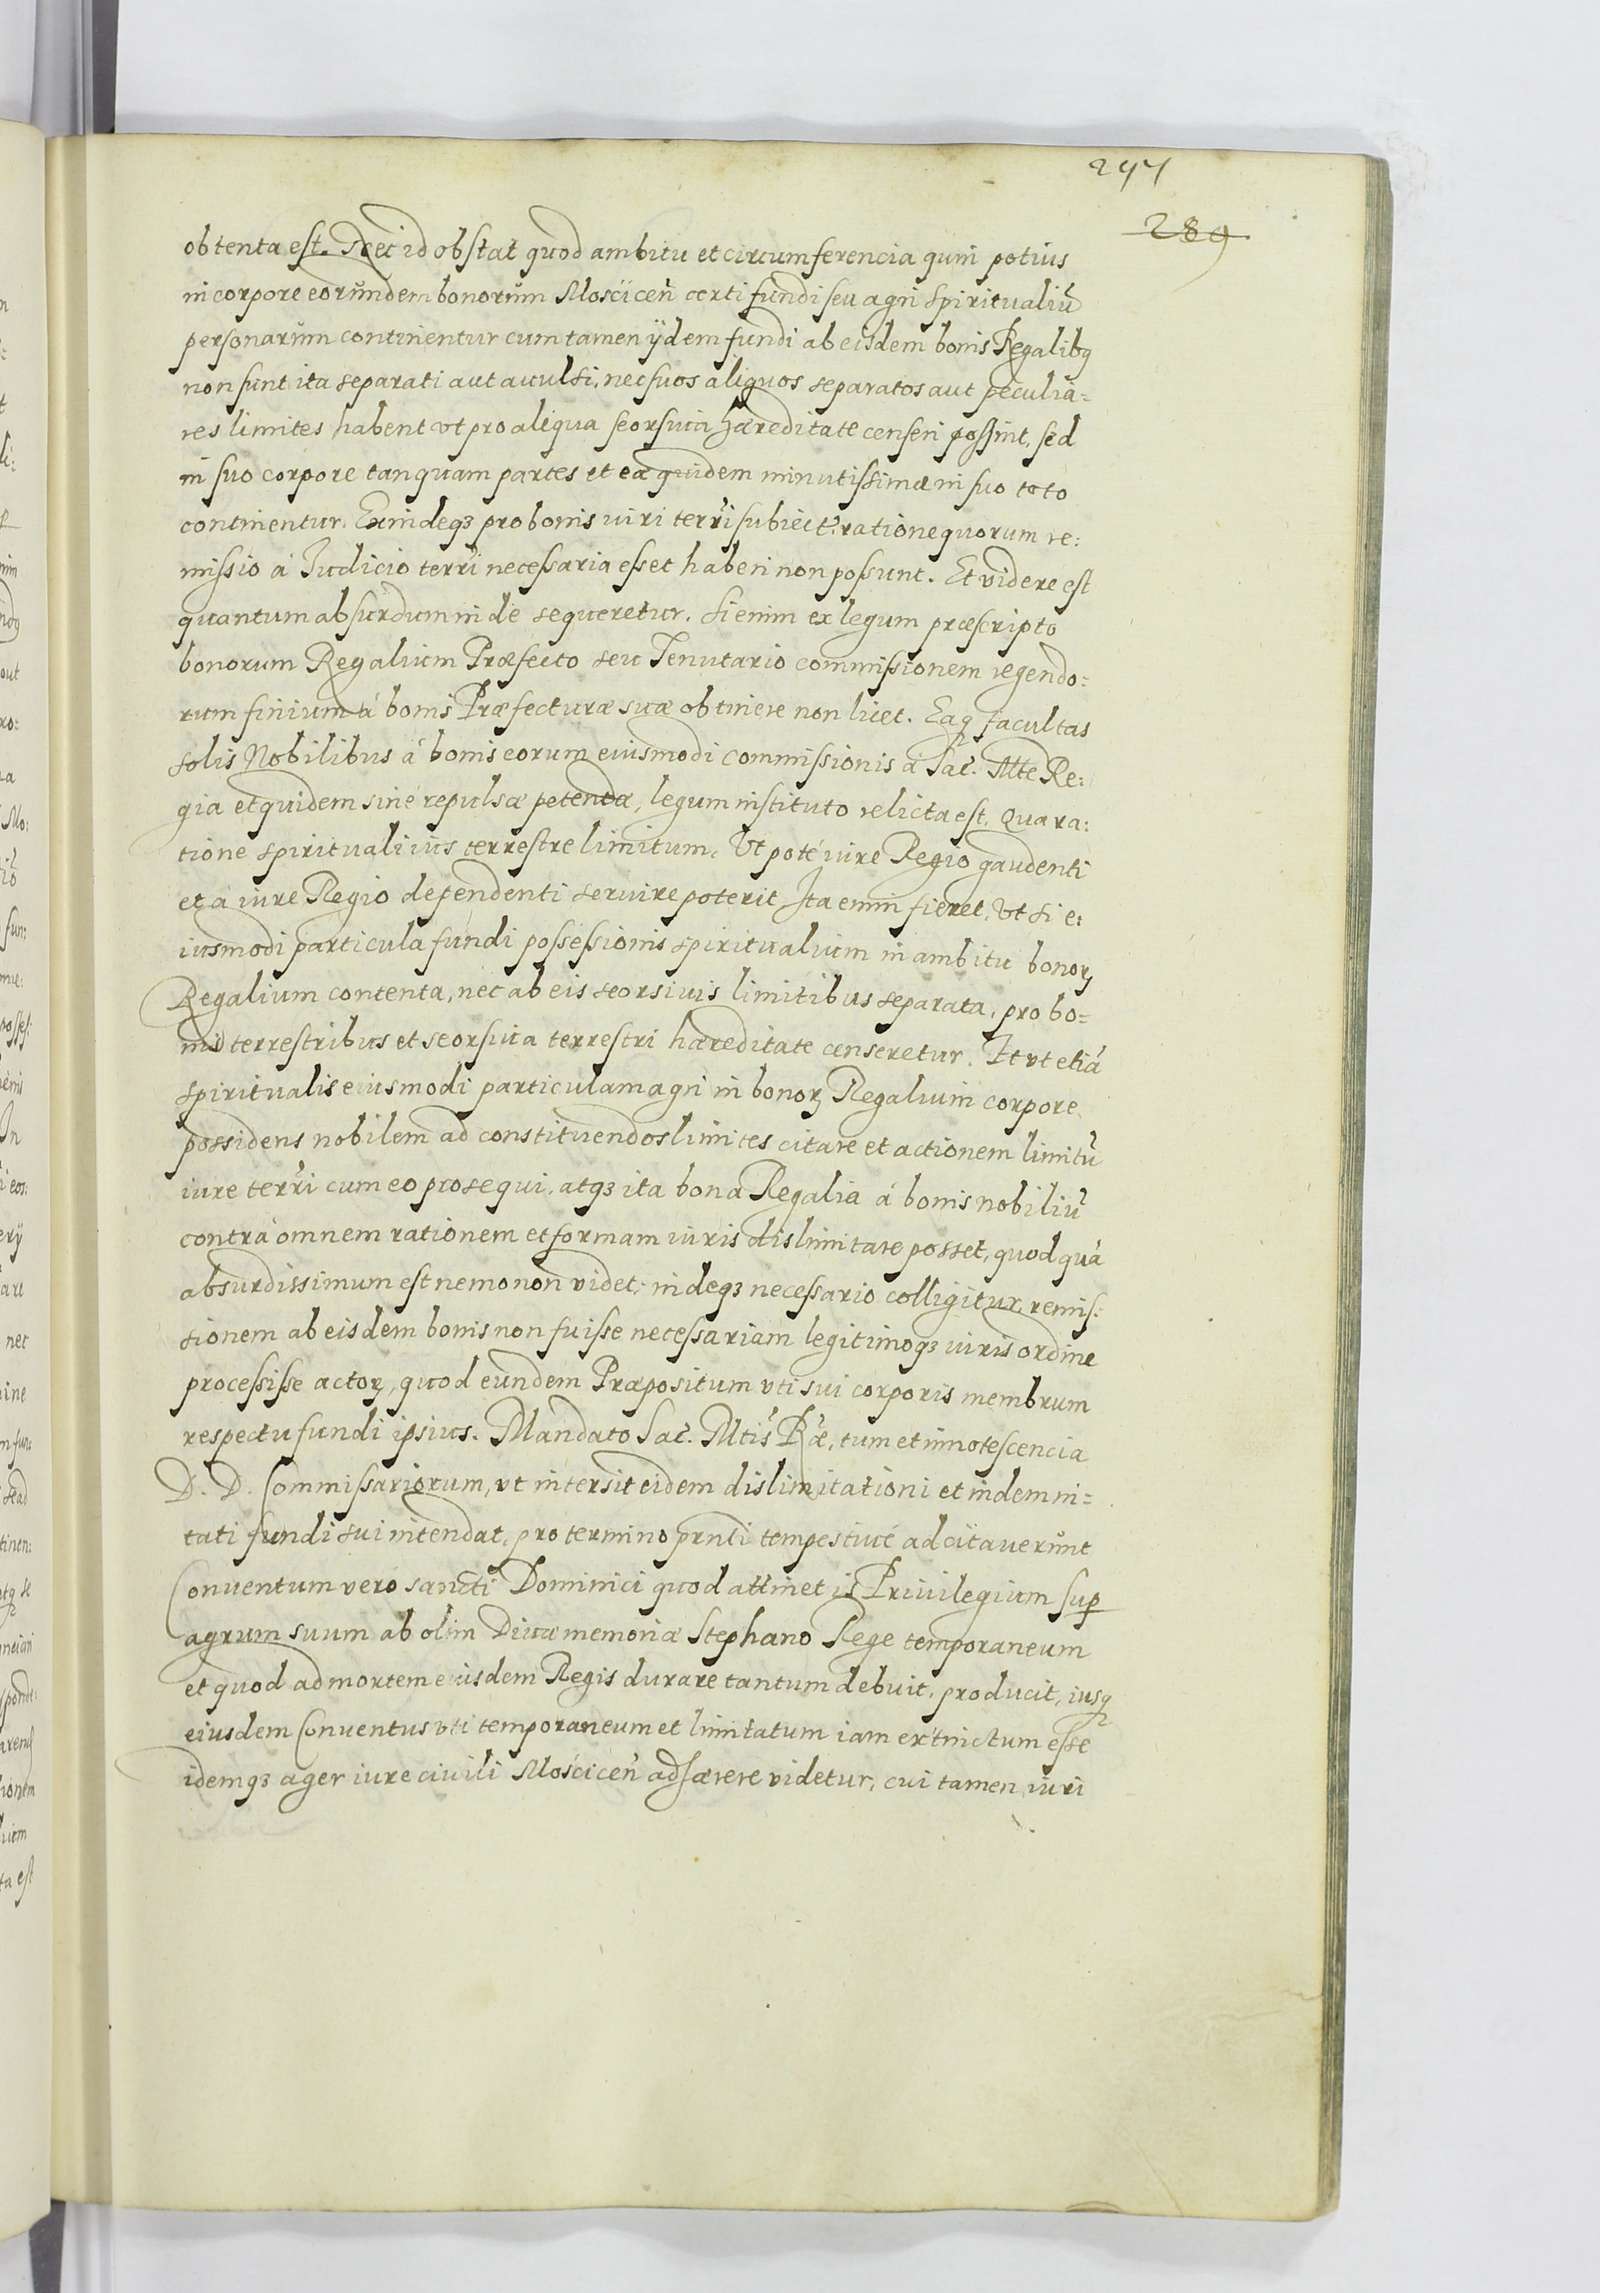 297
289
obtenta est. Nec id obstat quod ambitu et circumferencia quin potius
in corpore eorundem bonorum Moscicen̄ certi fundi seu agri spiritualiū
personarum continentur cum tamen ijdem fundi ab eisdem bonis Regalibq
non sunt ita separati aut avulsi, nec suos aliquos separatos aut peculia=
res limites habent vt pro aliqua seorsiva hæreditate censeri possint, sed
in suo corpore tanquam partes et eæ quidem minutissimæ in suo toto
continentur. Exindeqз pro bonis iuri terr̄i subiect: ratione quorum re:
missio á Iudicio terr̄i necessaria esset haberi non possunt. Et videre est
quantum absurdum inde sequeretur. Si enim ex legum præscripto
bonorum Regalium Præfecto seu Tenutario commissionem regendo=
rum finium á bonis Præfecturæ suæ obtinere non licet. Eaq facultas
solis Nobilibus á bonis eorum eiusmodi commissionis á Sac. Mtte Re:
gia et quidem sine repulsa petendæ, legum instituto relicta est. Qua ra:
tione spirituali ius terrestre limitum. Vt poté iure Regio gaudenti
et á iure Regio dependenti servire poterit, Ita enim fieret, Vt si e:
iusmodi particula fundi possessionis spiritualium in ambitu bonoꝝ
Regalium contenta, nec ab eis seorsivis limitibus separata, pro bo=
nis terrestribus et seorsiva terrestri hæreditate censeretur. It vt etiá
spiritualis eiusmodi particulam agri in bonoꝝ Regalium corpore
possidens nobilem ad constituendos limites citare et actionem limitū
iure terr̄i cum eo prosequi, atqз ita bona Regalia á bonis nobiliū
contra omnem rationem et formam iuris dislimitare posset, quod quá
absurdissimum est nemo non videt, indeqз necessario colligitur remis:
sionem ab eisdem bonis non fuisse necessariam legitimoqз iuris ordine
processisse actoꝝ, quod eundem Præpositum vti sui corporis membrum
respectu fundi ipsius. Mandato Sac. Mtis R̄æ, tum et innotescencia
D. D. Commissariorum, vt intersit eidem dislimitationi et indemni=
tati fundi sui intendat, pro termino prn̄ti tempestivé adcitaverunt
Conventum veró sancti Dominici quod attinet is Privilegium sup
agrum suum ab olim Divæ memoriæ Stephano Rege temporaneum
et quod ad mortem eiusdem Regis durare tantum debuit, producit, iusq
eiusdem Conventus vti temporaneum et limitatum iam extinctum esse
idemqз ager iure civili Mościcen̄ adhærere videtur, cui tamen iuri